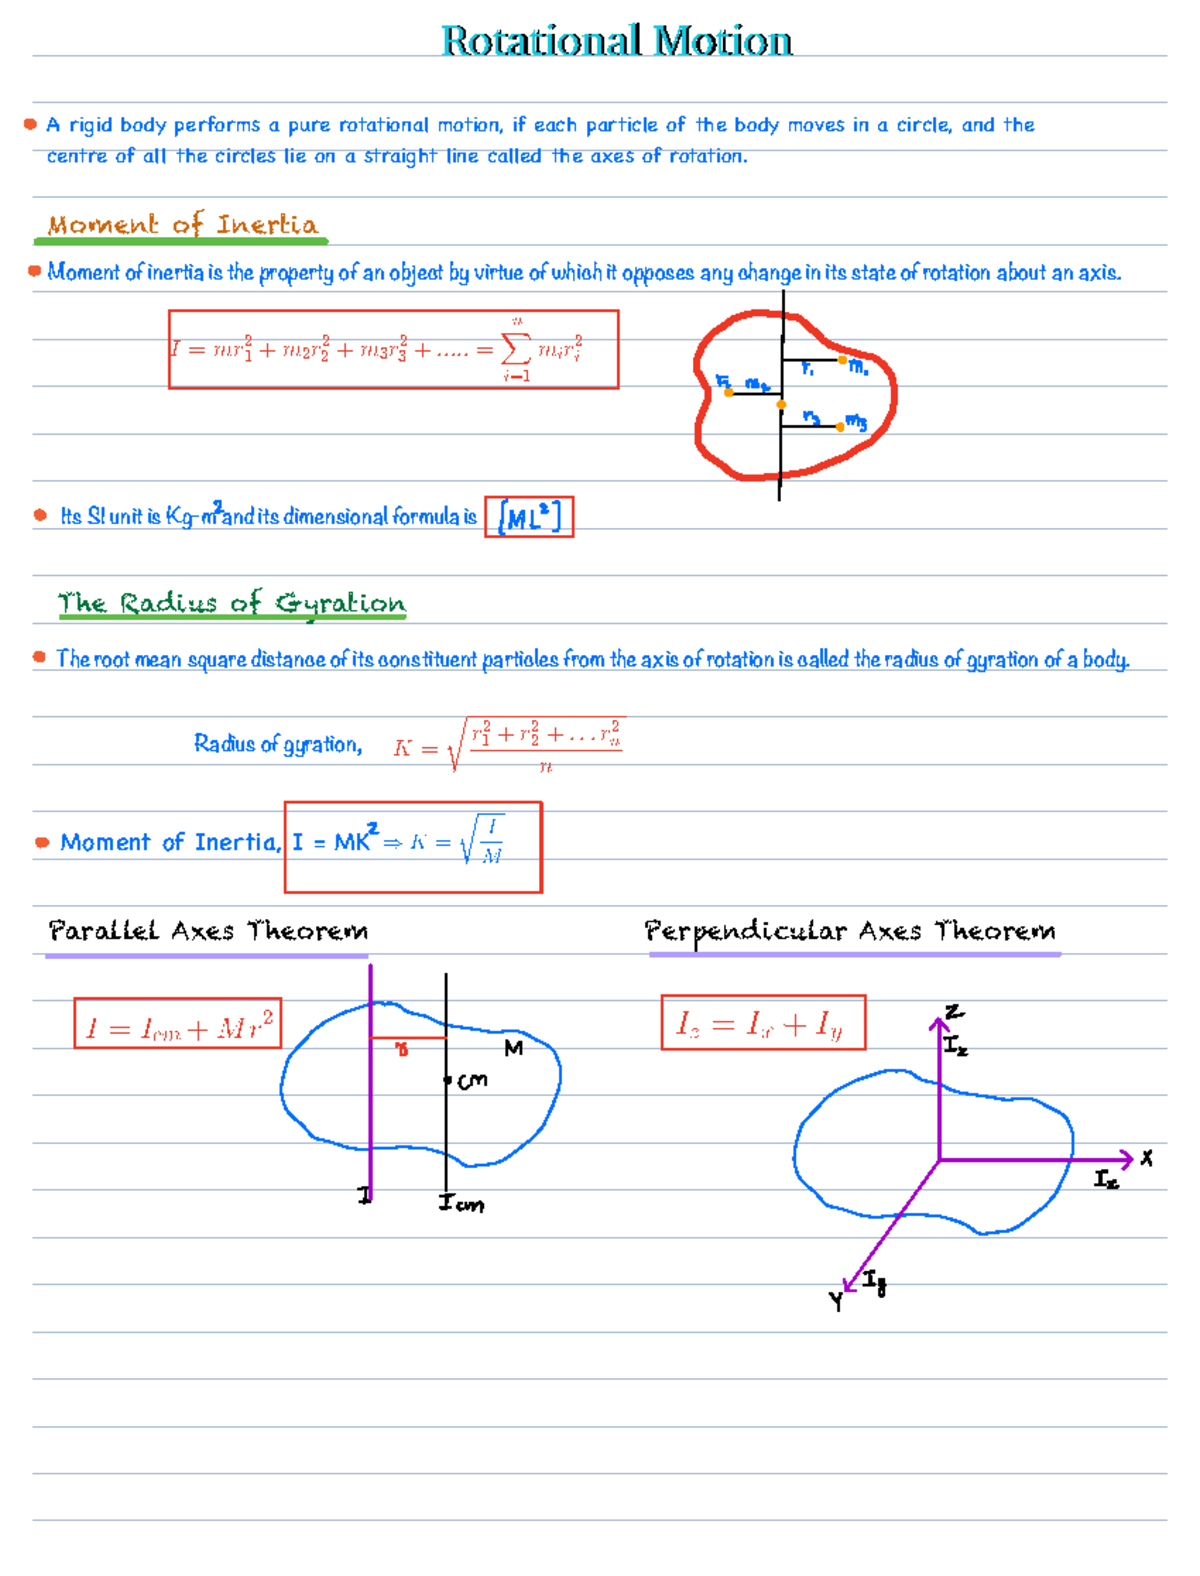 Rotational Motion
A rigid body performs a pure rotational motion, if each particle of the body moves in a circle, and the
centre of all the circles lie on a straight line called the axes of rotation.
Moment of Inertia
Moment of inertia is the property of an object by virtue of which it opposes any change in its state of rotation about an axis.
I = mr₁² + m₂r₂² + m₃r₃² + ..... = ∑ᵢ₌₁ⁿ mᵢrᵢ²
r₁ m₁
r₂ m₂
r₃ m₃
Its SI unit is Kg-m² and its dimensional formula is [ML²]
The Radius of Gyration
The root mean square distance of its constituent particles from the axis of rotation is called the radius of gyration of a body.
Radius of gyration, K = √((r₁² + r₂² + ... rₙ²)/n)
Moment of Inertia, I = MK² ⇒ K = √(I/M)
Parallel Axes Theorem
Perpendicular Axes Theorem
I = Icm + Mr²
r
M
cm
I
Icm
Iz = Ix + Iy
Z
Iz
X
Ix
Iy
Y